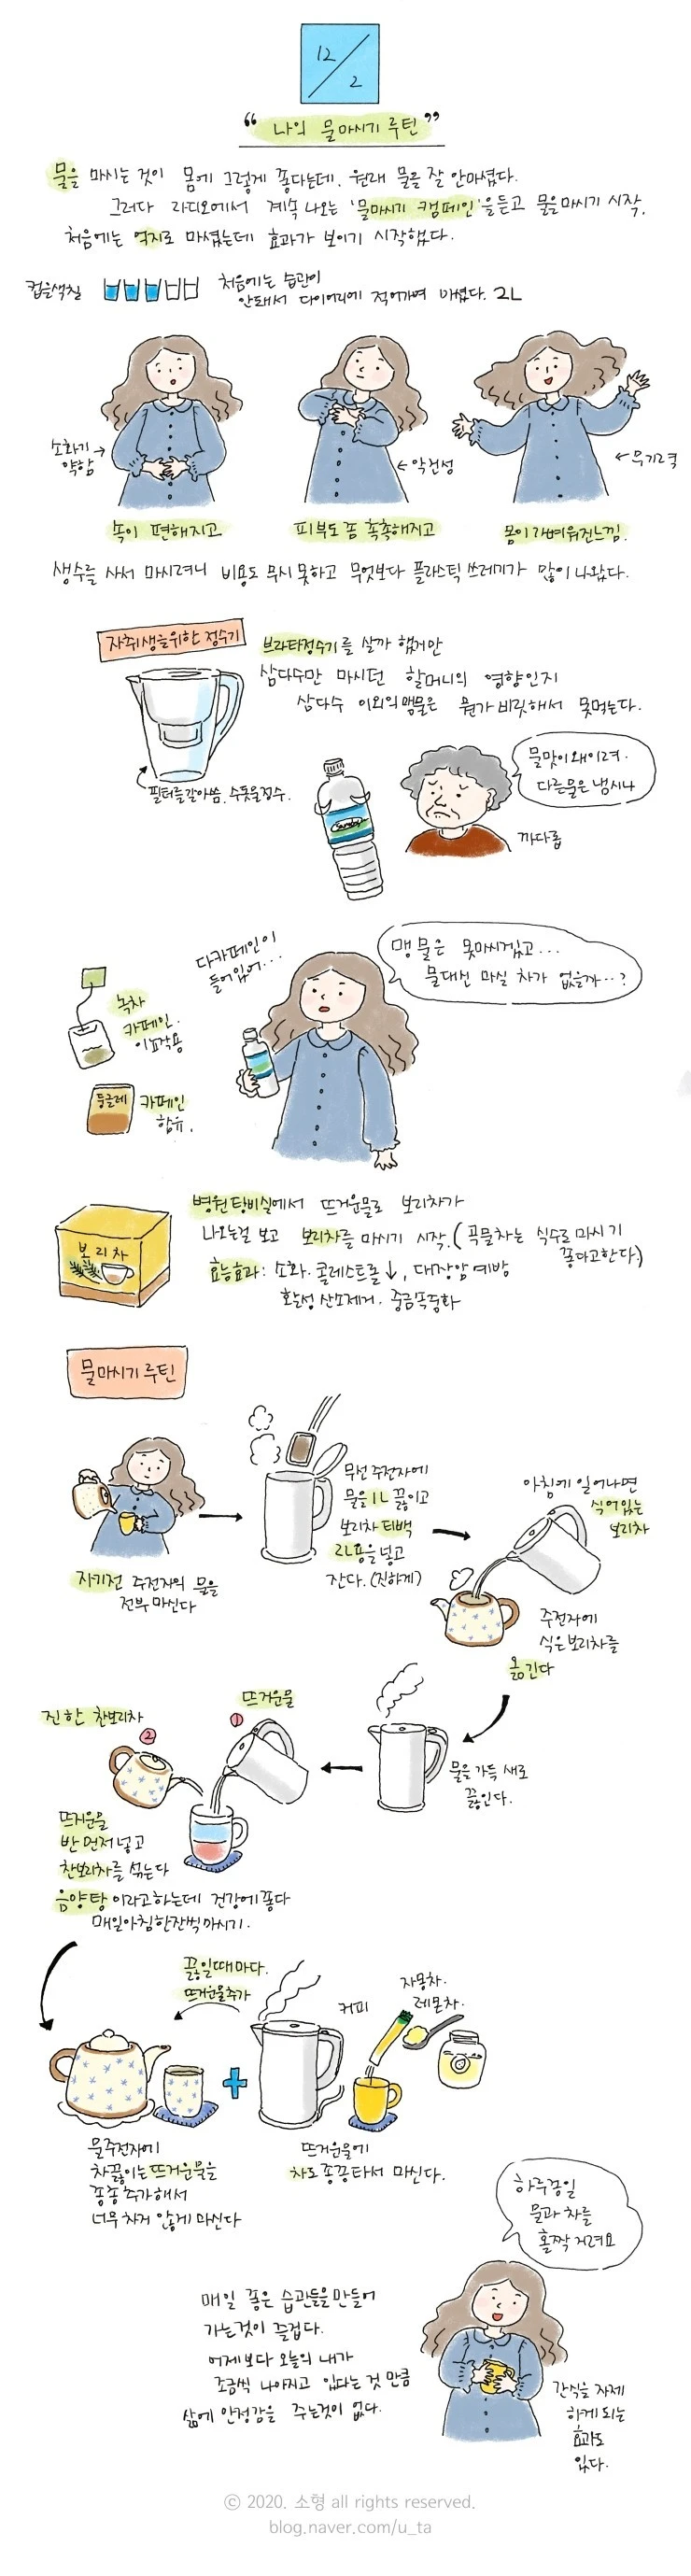 12
2
"나의 물마시기 루틴"
물을 마시는 것이 몸에 그렇게 좋다는데, 원래 물을 잘 안마셨다.
그러다 라디오에서 계속 나오는 '물마시기 캠페인'을 듣고 물을 마시기 시작.
처음에는 억지로 마셨는데 효과가 보이기 시작했다.
컵을색칠
처음에는 습관이
안돼서 다이어리에 적어가며 마셨다. 2L
소화기
약함
속이 편해지고
악건성
피부도 좀 촉촉해지고
무기력
몸이 가벼워진느낌.
생수를 사서 마시려니 비용도 무시 못하고 무엇보다 플라스틱 쓰레기가 많이 나왔다.
자취생을위한 정수기
브리타정수기를 살까 했지만
삼다수만 마시던 할머니의 영향인지
삼다수 이외의 맹물은 뭔가 비릿해서 못먹는다.
필터를갈아씀. 수돗물정수.
물맛이 왜이려.
다른물은 냄시나
까다롭
다카페인이
들어있어...
맹물은 못마시겠고...
물대신 마실 차가 없을까..?
녹차
카페인.
이뇨작용
둥글레
카페인
함유.
보리차
병원 탕비실에서 뜨거운물로 보리차가
나오는걸 보고 보리차를 마시기 시작. (곡물차는 식수로 마시기
좋다고한다.)
효능효과: 소화. 콜레스트롤↓, 대장암 예방
활성 산소제거. 중금속중화
물마시기 루틴
자기전 주전자의 물을
전부 마신다
무선 주전자에
물을 1L 끓이고
보리차 티백
2L용을 넣고
잔다. (진하게)
아침에 일어나면
식어있는
보리차
주전자에
식은보리차를
옮긴다
물을 가득 새로
끓인다.
진한 찬보리차
②
뜨거운물
①
뜨거운물
반 먼저 넣고
찬보리차를 섞는다
음양탕 이라고하는데 건강에 좋다
매일아침 한잔씩마시기.
끓일때마다.
뜨거운물추가
커피
자몽차.
레몬차.
물주전자에
차끓이는 뜨거운물을
종종 추가해서
너무 차지 않게 마신다
뜨거운물에
차도 종종타서 마신다.
하루종일
물과 차를
홀짝 거려요
매일 좋은 습관들을 만들어
가는것이 즐겁다.
어제보다 오늘의 내가
조금씩 나아지고 있다는 것 만큼
삶에 안정감을 주는것이 없다.
간식을 자제
하게 되는
효과도
있다.
© 2020. 소형 all rights reserved.
blog.naver.com/u_ta